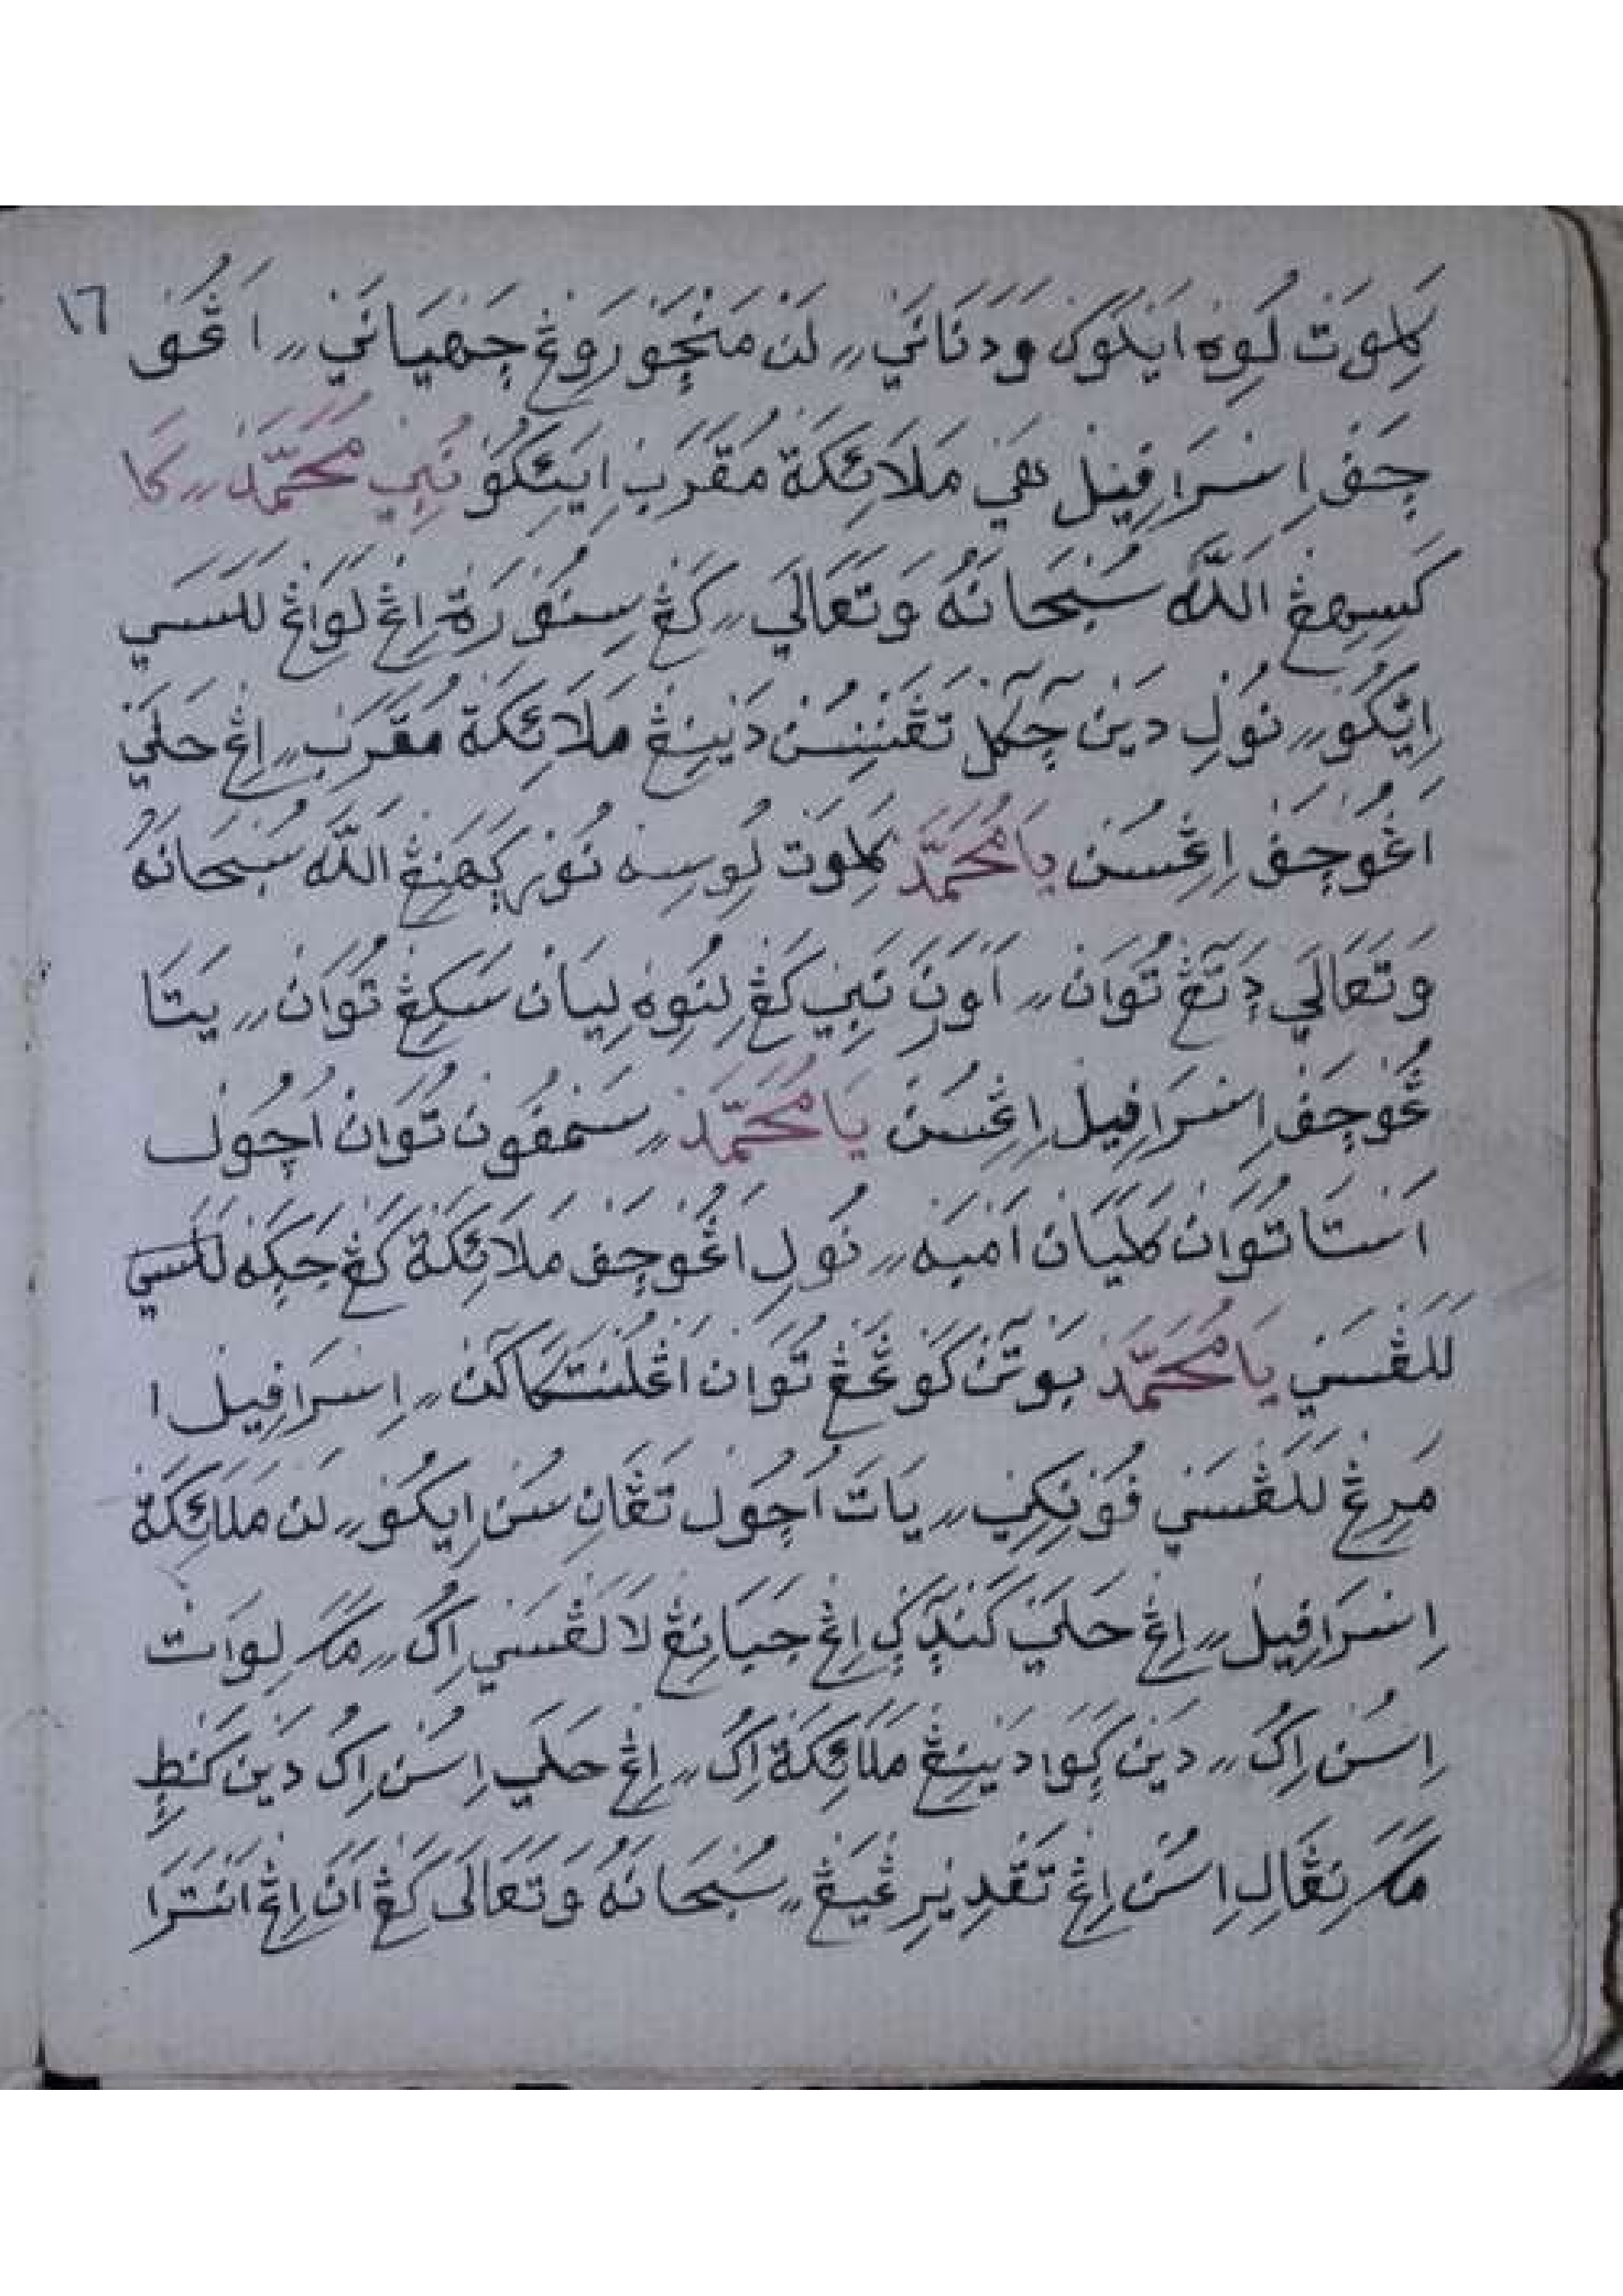 ١٦
كَلِمَوَتْ لُوِهْ اَيْلَوَكْ وَدَنَانَيْ ࣫ لَنْ مَنْچَوْرَوْڠْ چَهَيَانَيْ ࣫ اَڠُو
چَفْ اِسْرَافِيْلْ مَلَائِكَةْ مُقَرَبْ اِيَيْكُوْ نَبِيْ مُحَمَّدْ ࣫ كَا
كَسِهِڠْ اَللّٰهْ سُبْحَانَهُ وَتَعَالَي ࣫ كَڠْ سِنُوْرَةْ اِڠْ لَوَاڠْ
اِيْكُوْ ࣫ نُوْلِ دَيْنْ چَكَلْ تَڠَنِنِسُنْ دَيْنِڠْ مَلَائِكَةْ مُقَرَبْ ࣫ اِڠْ حَلَيْ
اَڠُوْچَفْ اِڠْسُنْ يَامُحَمَّدْ كَلِمَوَتْ لُوِسِهْ نُوْرْ اللّٰهْ سُبْحَانَهُ
وَتَعَالَي دَتَڠْ تُوَانْ ࣫ اَوَنَ نَبِيْ كَڠْ لِنُوِهْ لِيَانْ سَكِڠْ تُوَانْ ࣫ يَتَا
ڠُوْچَفْ اِسْرَافِيْلْ اِڠْسُنْ يَامُحَمَّدْ ࣫ سَمْفُوْنْ تُوَانْ اُچُوْلْ
اَسْتَا تُوَانْ كَلِيَانْ اَمْبَهْ ࣫ نُوْلِ اَڠُوْچَفْ مَلَائِكَةْ كَڠْ
لَلڠْسَيْ يَامُحَمَّدْ بَوْتَنْ كَوْڠَڠْ تُوَانْ ࣫ اِسْرَافِيْلْ ا
مَرِڠْ لَلَڠْسَيْ فُوْنِكِيْ ࣫ يَاتَ اُچُوْلْ تَڠَانِ سُنْ اِيْكُوْ ࣫ لَنْ مَلَائِكَةْ
اِسْرَافِيْلْ ࣫ اِڠْ حَلَيْ اِڠْ جَبَانِڠْ لَالَڠْسَيْ اِكُ ࣫ مَكَ لِوَاتْ
اِسُنْ اِكُ ࣫ دَيْنْ ڮَوَا دَيْنِڠْ مَلَائِكَةْ اِكُ ࣫ اِڠْ حَلَيْ اِسُنْ اِكُ دَيْنْ
مَكَ نِڠَالِ اِسُنْ اِڠْ تَقْدِيْرِ ࣫ سُبْحَانَهُ وَتَعَالَى كَڠْ اَنَ اِڠْ اَنْتَرَا